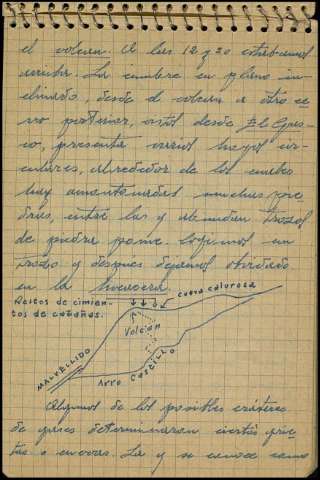 el volcan. A las 12 y 20 estabamos
arriba. La cumbre en plano in-
clinado, desde el volcan a otro ce-
rro posterior, visto desde El Gas-
co, presenta varios hoyos cir-
culares, alrededor de los cuales
hay amontonadas muchas pie-
dras, entre las q abundan trozos
de piedra pome. Cogimos un
trozo y despues dejamos olvidado
en la
Restos de cimien-
tos de cabañas.
cueva calurosa
Volcan
MALVELLIDO
Arro Castillo
Algunos de los posibles cráteres
de gases determinaron ciertas grie-
tas o cuevas. La q se conoce como